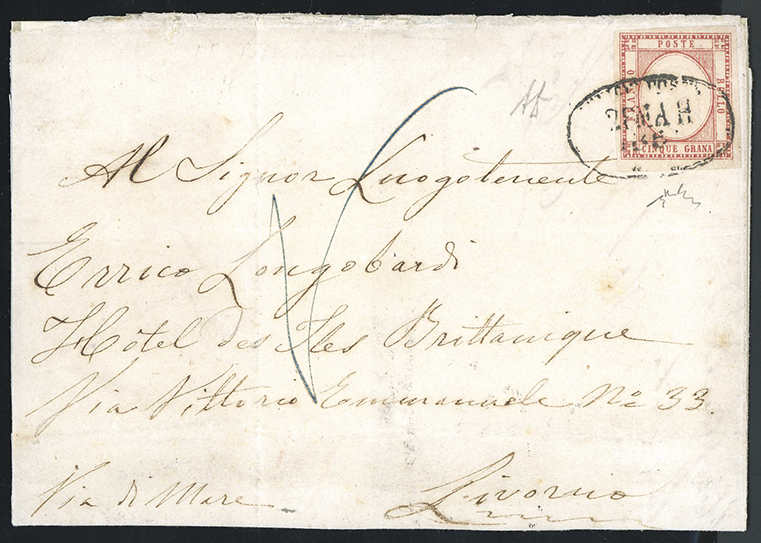 POSTE
FRANCO
BOLLO
CINQUE GRANA
Al Signor Luogotenente
Errico Longobardi
Hôtel des Iles Brittanique
Via Vittorio Emmanuele No 33.
Via di Mare
Livorno